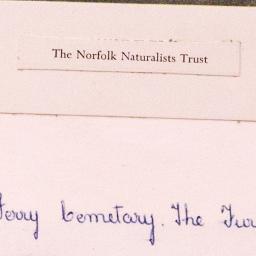 The Norfolk Naturalists Trust
Ferry Cemetary. The